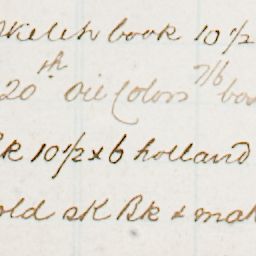 Sketch book 10 1/2
20th Oil Colors 7/6 box
k 10 1/2 x 6 holland
old sk Bk & mak